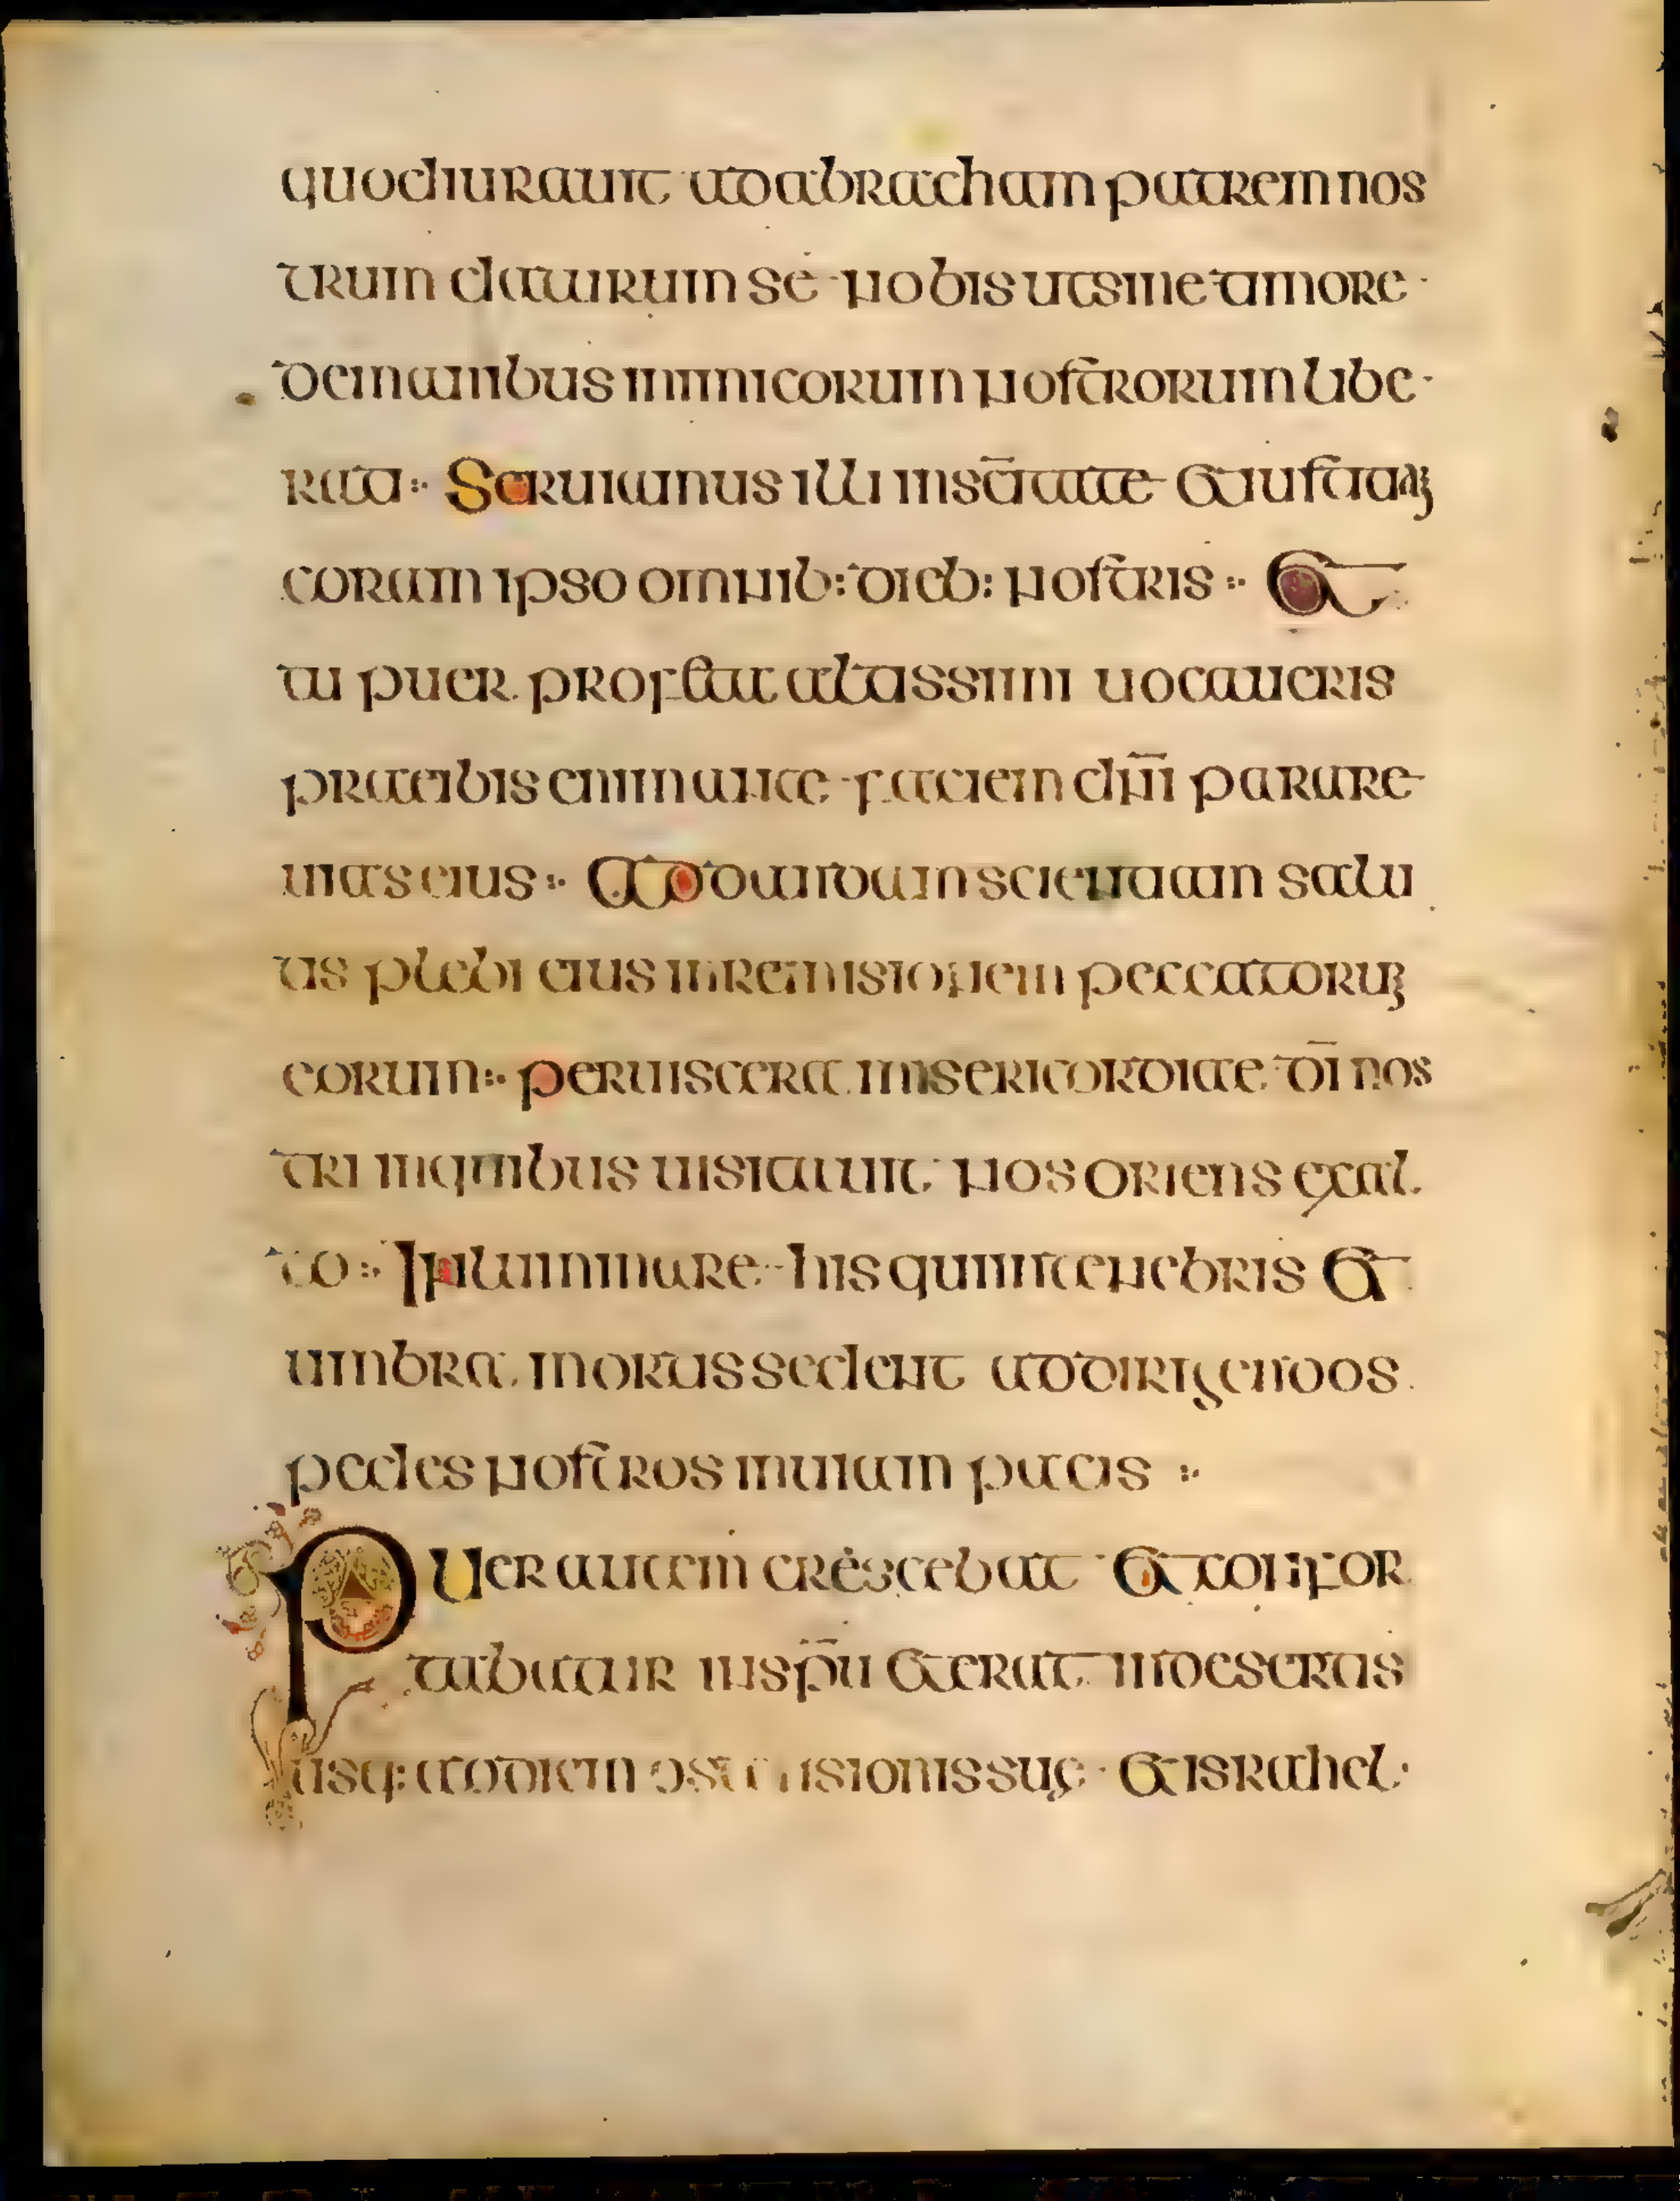 quodiurauit adabracham patrem nos
trum daturum se nobis utsine timore
demanibus inimicorum nostrorum libe
rati Seruiamus illi inscītate et iustitiaꝫ
coram ipso omnib: dieb: nostris Et
tu puer profeta altissimi uocaueris
praeibis enim ante faciem dn̄i parare
uias eius Ad dandam scientiam salu
tis plebi eius inremisionem peccatoruꝫ
eorum peruiscera misericordiae dī nos
tri inquibus uisitauit nos oriens exal
to Inluminare his quiintenebris et
umbra mortis sedent addirigendos
pedes nostros inuiam pacis
Puer autem crescebat et confor
tabatur inspū et erat indesertis
usq: addiem ostensionis suę et israhel